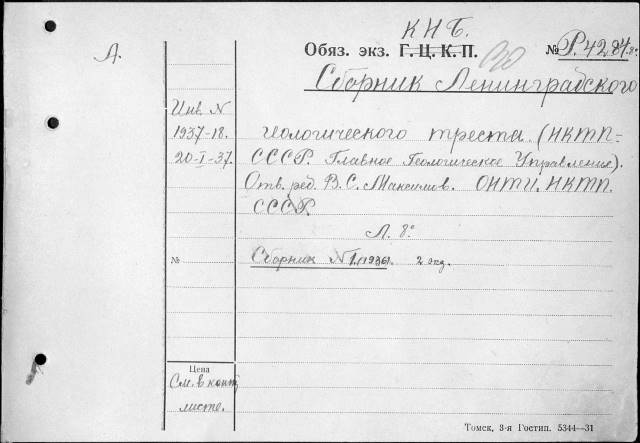 КНБ.
А.
Обяз. экз. Г. Ц. К. П.
№ Р.4284.8º
Сборник Ленинградского
Инв. N
1937-18.
20-I-37.
геологического треста (НКТП-
СССР. Главное Геологическое Управление).
Отв. ред. В. С. Максимов. ОНТИ. НКТП.
СССР.
Л. 8º
№
Сборник №1.(1936). 2 экз.
Цена
См. в конт.
листе.
Томск, 3-я Гостип. 5344—31